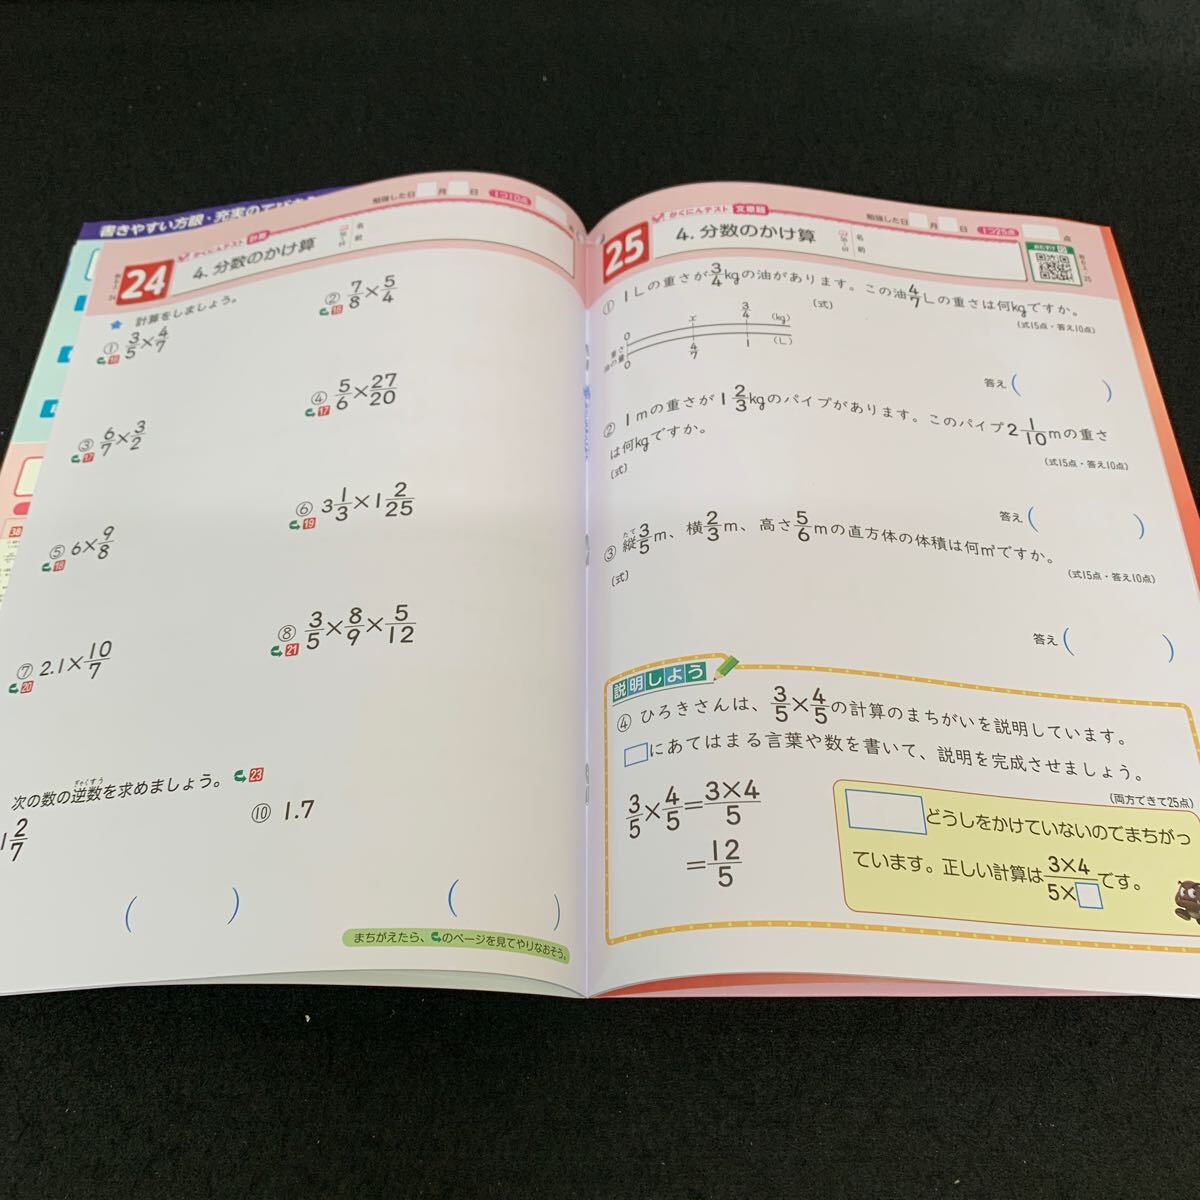 書きやすい方眼・充実の
24
かくにんテスト 計算
4. 分数のかけ算
名前
勉強した日 月 日
1つ10点
★ 計算をしましょう。
① 3/5×4/7
18
② 7/8×5/4
18
③ 6/7×3/2
17
④ 5/6×27/20
17
⑤ 6×9/8
18
⑥ 3 1/3×1 2/25
19
⑦ 2.1×10/7
20
⑧ 3/5×8/9×5/12
21
次の数の逆数を求めましょう。 23
ぎゃくすう
1 2/7
⑩ 1.7
( )
( )
まちがえたら、のページを見てやりなおそう。
25
かくにんテスト 文章題
4. 分数のかけ算
名前
勉強した日 月 日
1つ25点
点
① 1Lの重さが3/4kgの油があります。この油4/7Lの重さは何kgですか。
(式)
(式15点・答え10点)
0 x 3/4 (kg)
重さ
油の量
0 4/7 1 (L)
答え ( )
② 1mの重さが1 2/3kgのパイプがあります。このパイプ2 1/10mの重さ
は何kgですか。
(式)
(式15点・答え10点)
答え ( )
③ 縦3/5m、横2/3m、高さ5/6mの直方体の体積は何m³ですか。
たて
(式)
(式15点・答え10点)
答え ( )
説明しよう
④ ひろきさんは、3/5×4/5の計算のまちがいを説明しています。
□にあてはまる言葉や数を書いて、説明を完成させましょう。
(両方できて25点)
3/5×4/5=3×4/5
=12/5
□どうしをかけていないのでまちがっ
ています。正しい計算は3×4/5×□です。